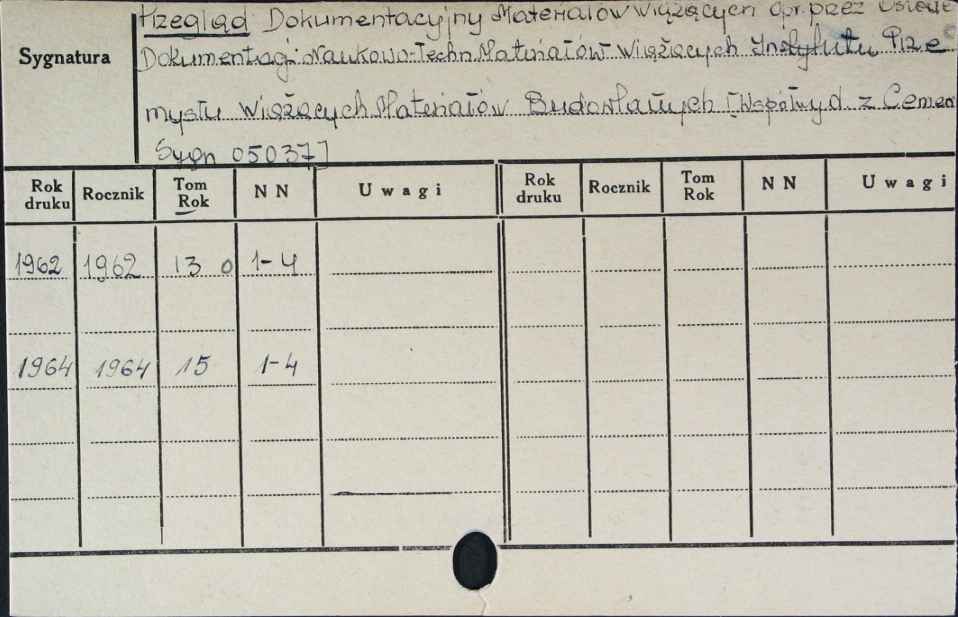 Przegląd Dokumentacyjny Materiałów Wiążących Opr. przez Ośrode
Sygnatura
Dokumentacji Naukowo-Techn. Materiałów Wiążących Instytutu Prze
mysłu Wiążących Materiałów Budowlanych [Wspólwyd. z Cemen
Sygn 050377]
Rok druku Rocznik Tom Rok NN Uwagi Rok druku Rocznik Tom Rok NN Uwagi
1962 1962 13 0 1-4
1964 1964 15 1-4